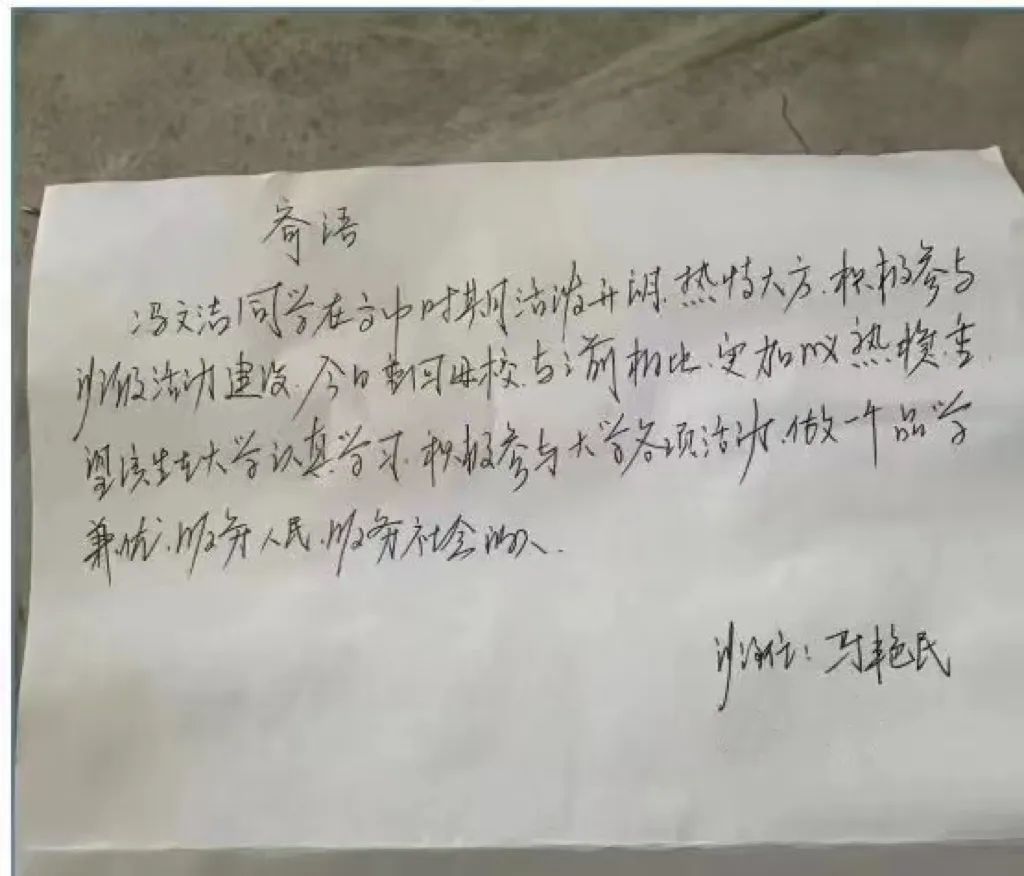 寄语
冯文洁同学在高中时期活泼开朗.热情大方.积极参与
班级活动建设.今日重回母校.与之前相比.更加以热
望该生在大学认真学习.积极参与大学各项活动.做一个品学
兼优.服务人民.服务社会的人.
班主任：马艳民